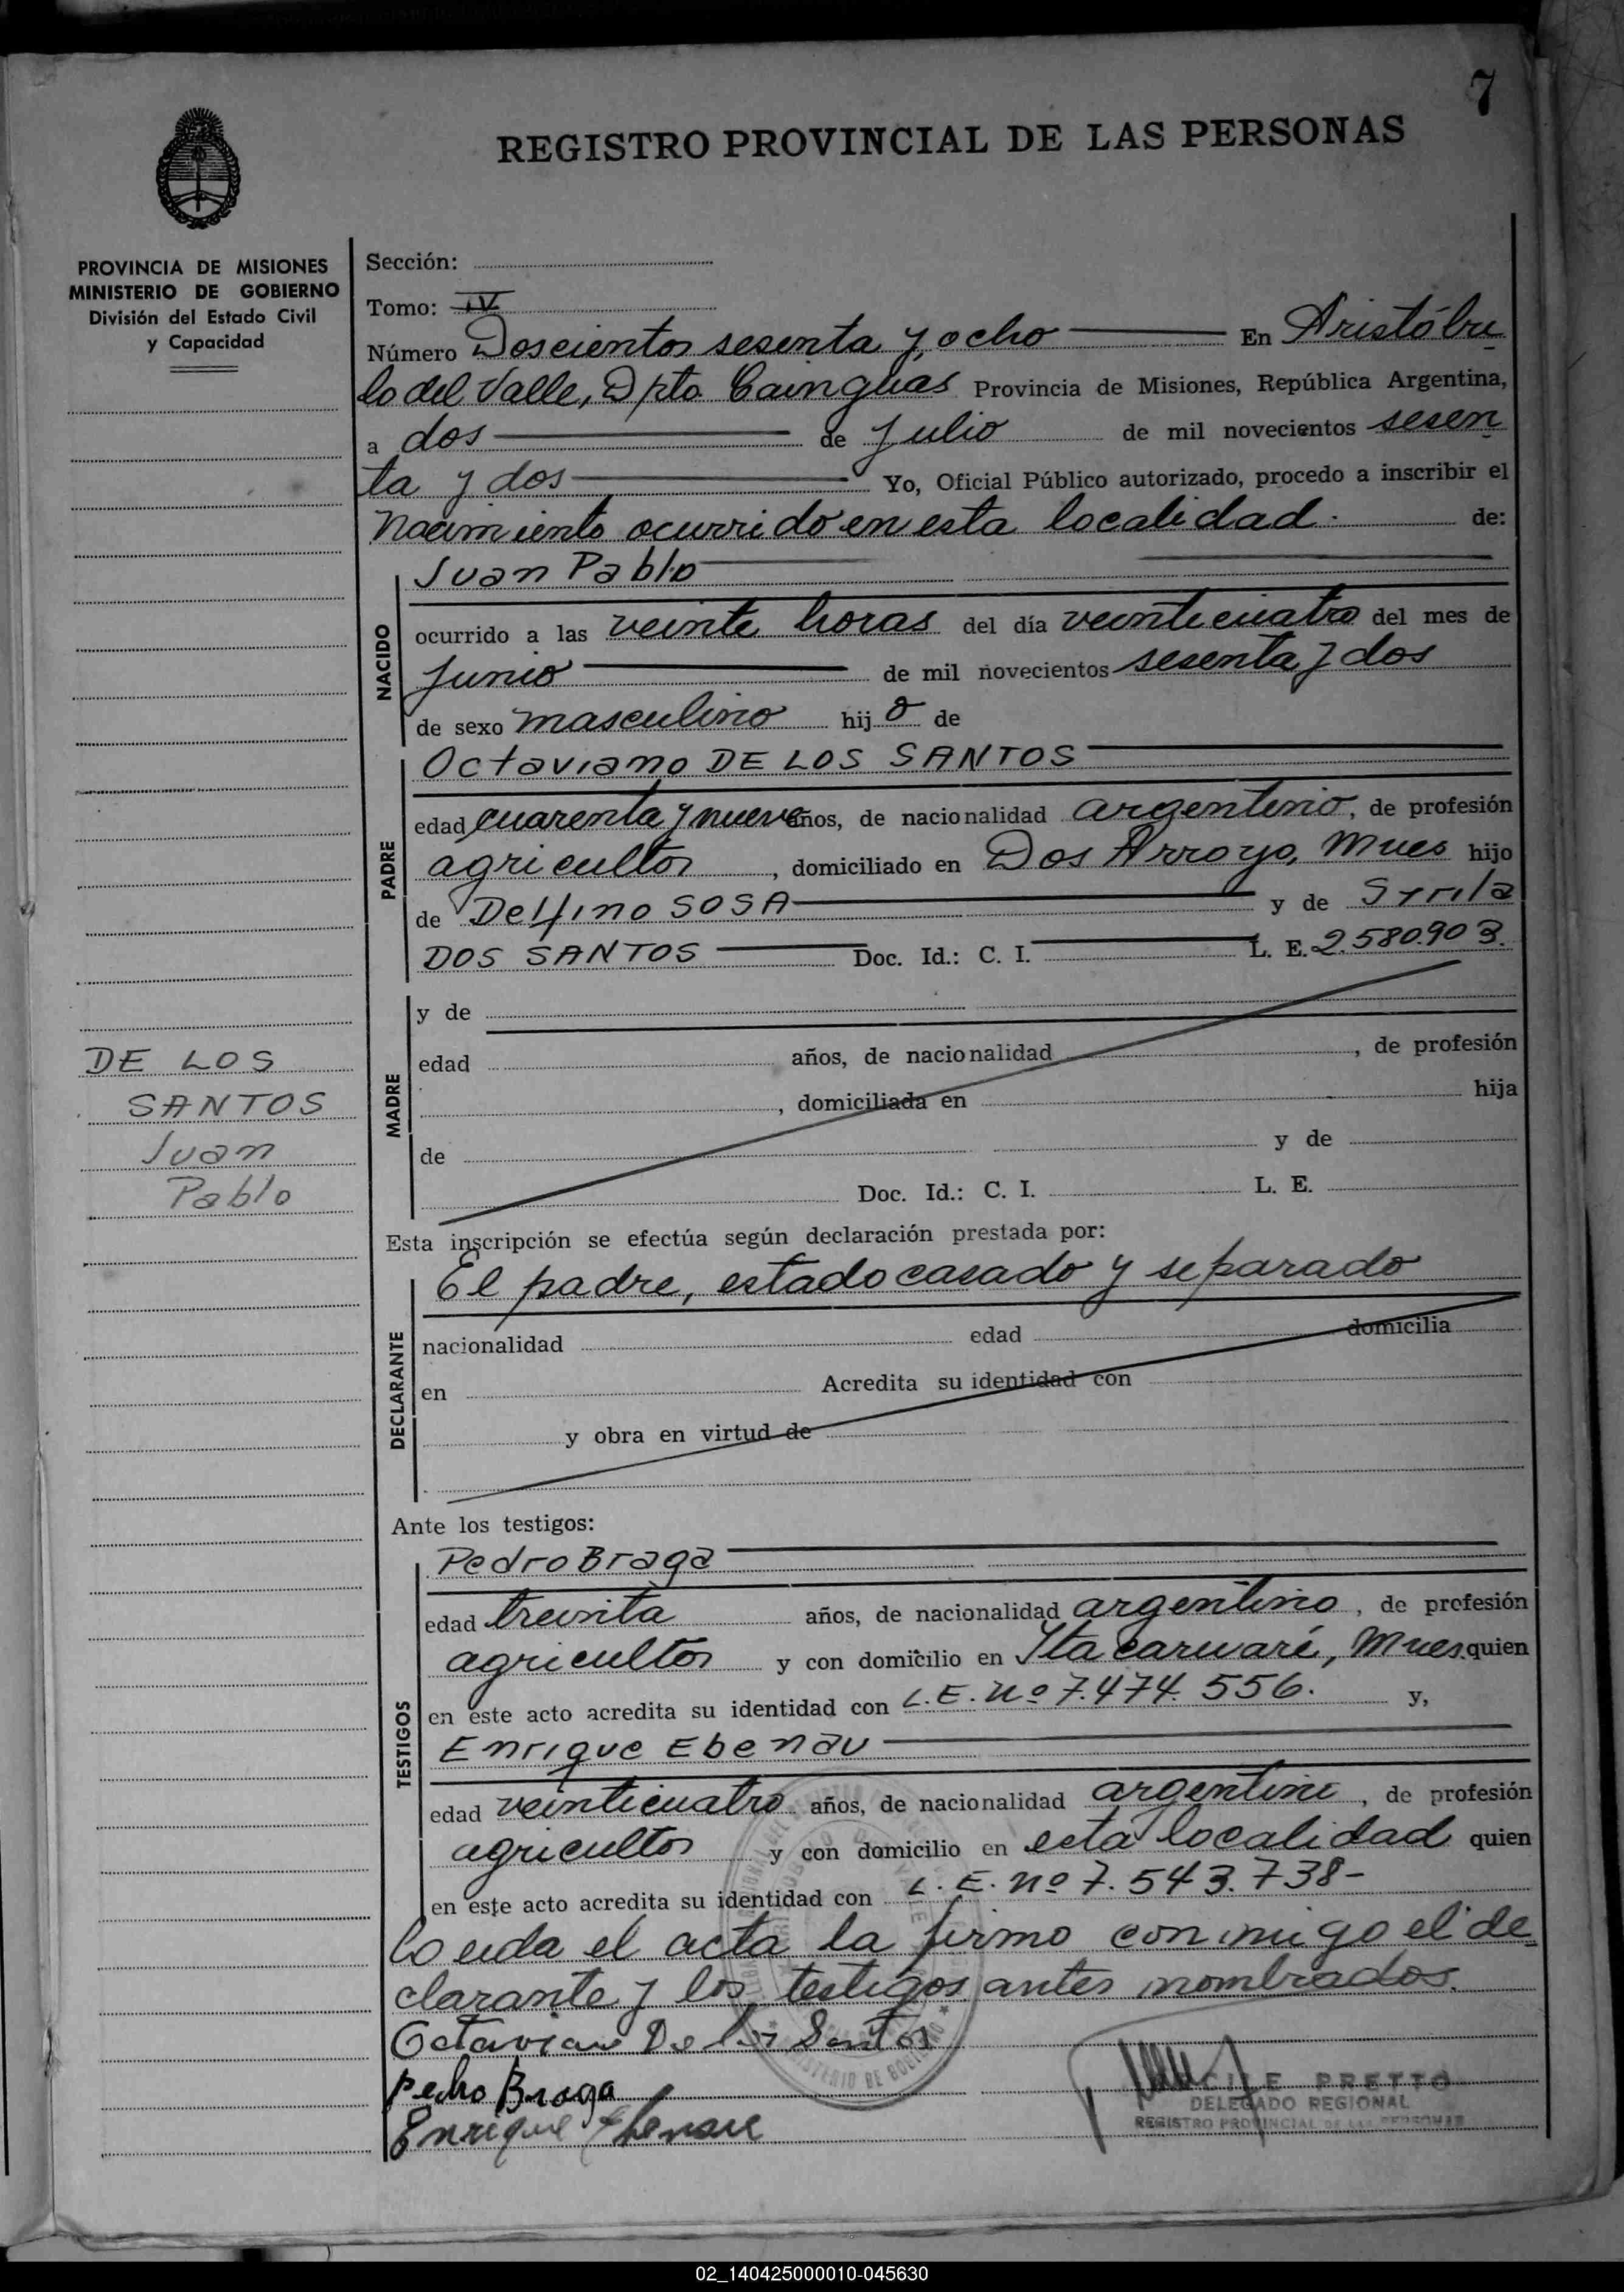 7
REGISTRO PROVINCIAL DE LAS PERSONAS
PROVINCIA DE MISIONES
MINISTERIO DE GOBIERNO
División del Estado Civil
y Capacidad
Sección:
Tomo: IV
Número Doscientos sesenta y ocho En Aristóbu
lo del Valle, Dpto. Cainguas Provincia de Misiones, República Argentina,
a dos de Julio de mil novecientos sesen
ta y dos Yo, Oficial Público autorizado, procedo a inscribir el
Nacimiento ocurrido en esta localidad. de:
Juan Pablo
NACIDO
ocurrido a las veinte horas del día veinticuatro del mes de
Junio de mil novecientos sesenta y dos
de sexo masculino hijo de
Octaviano DE LOS SANTOS
PADRE
edad cuarenta y nueve años, de nacionalidad argentino, de profesión
agricultor, domiciliado en Dos Arroyo, Mnes hijo
de Delfino SOSA y de Syrila
DOS SANTOS Doc. Id.: C. I. L. E. 2.580.903.
MADRE
y de
edad años, de nacionalidad, de profesión
, domiciliada en hija
de y de
Doc. Id.: C. I. L. E.
DE LOS
SANTOS
Juan
Pablo
Esta inscripción se efectúa según declaración prestada por:
El padre, estado casado y separado
DECLARANTE
nacionalidad edad domicilia
en Acredita su identidad con
y obra en virtud de
Ante los testigos:
Pedro Braga
TESTIGOS
edad treinta años, de nacionalidad argentino, de profesión
agricultor y con domicilio en Itacaruaré, Mnes. quien
en este acto acredita su identidad con L.E. Nº 7.474.556. y,
Enrique Ebenau
edad veinticuatro años, de nacionalidad argentino, de profesión
agricultor y con domicilio en esta localidad quien
en este acto acredita su identidad con L.E. Nº 7.543.738-
Leida el acta la firmo conmigo el de
clarante y los testigos antes nombrados.
Octavian De los Santos
Pedro Braga
Enrique Ebenau
PRETTO
DELEGADO REGIONAL
REGISTRO PROVINCIAL DE LAS PERSONAS
02_140425000010-045630